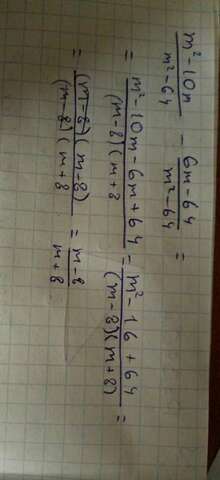 (m²-10m)/(m²-64) - (6m-64)/(m²-64) =
= (m²-10m-6m+64)/((m-8)(m+8) = (m²-16+64)/((m-8)(m+8)) =
= ((m-8)(m-8))/((m-8)(m+8) = (m-8)/(m+8)